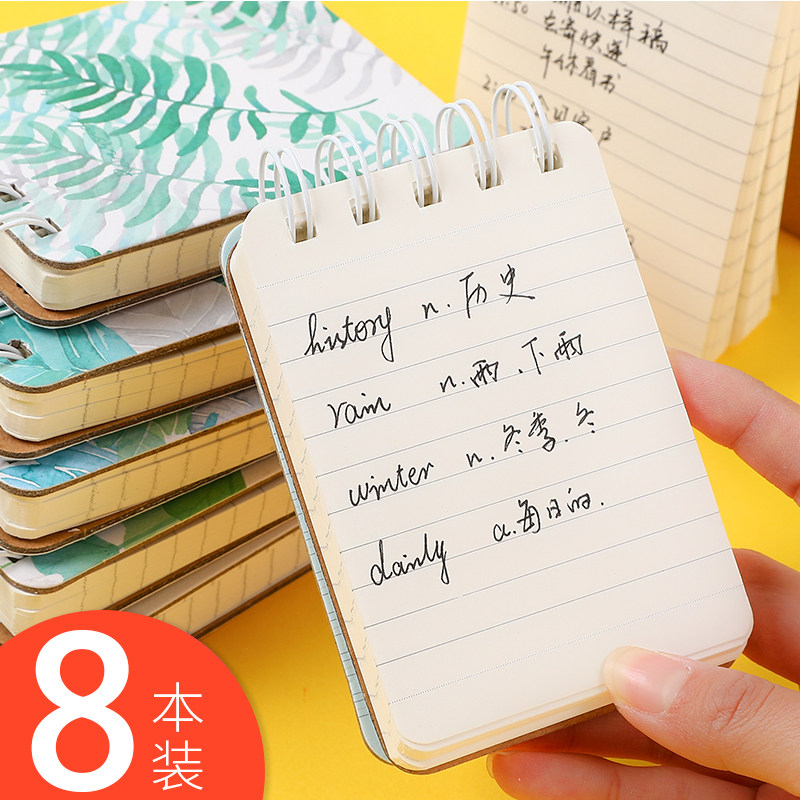 认样稿
寄快递
午休看书
history n. 历史
rain n. 雨、下雨
winter n. 冬季.冬
dainly a. 每日的.
8本装